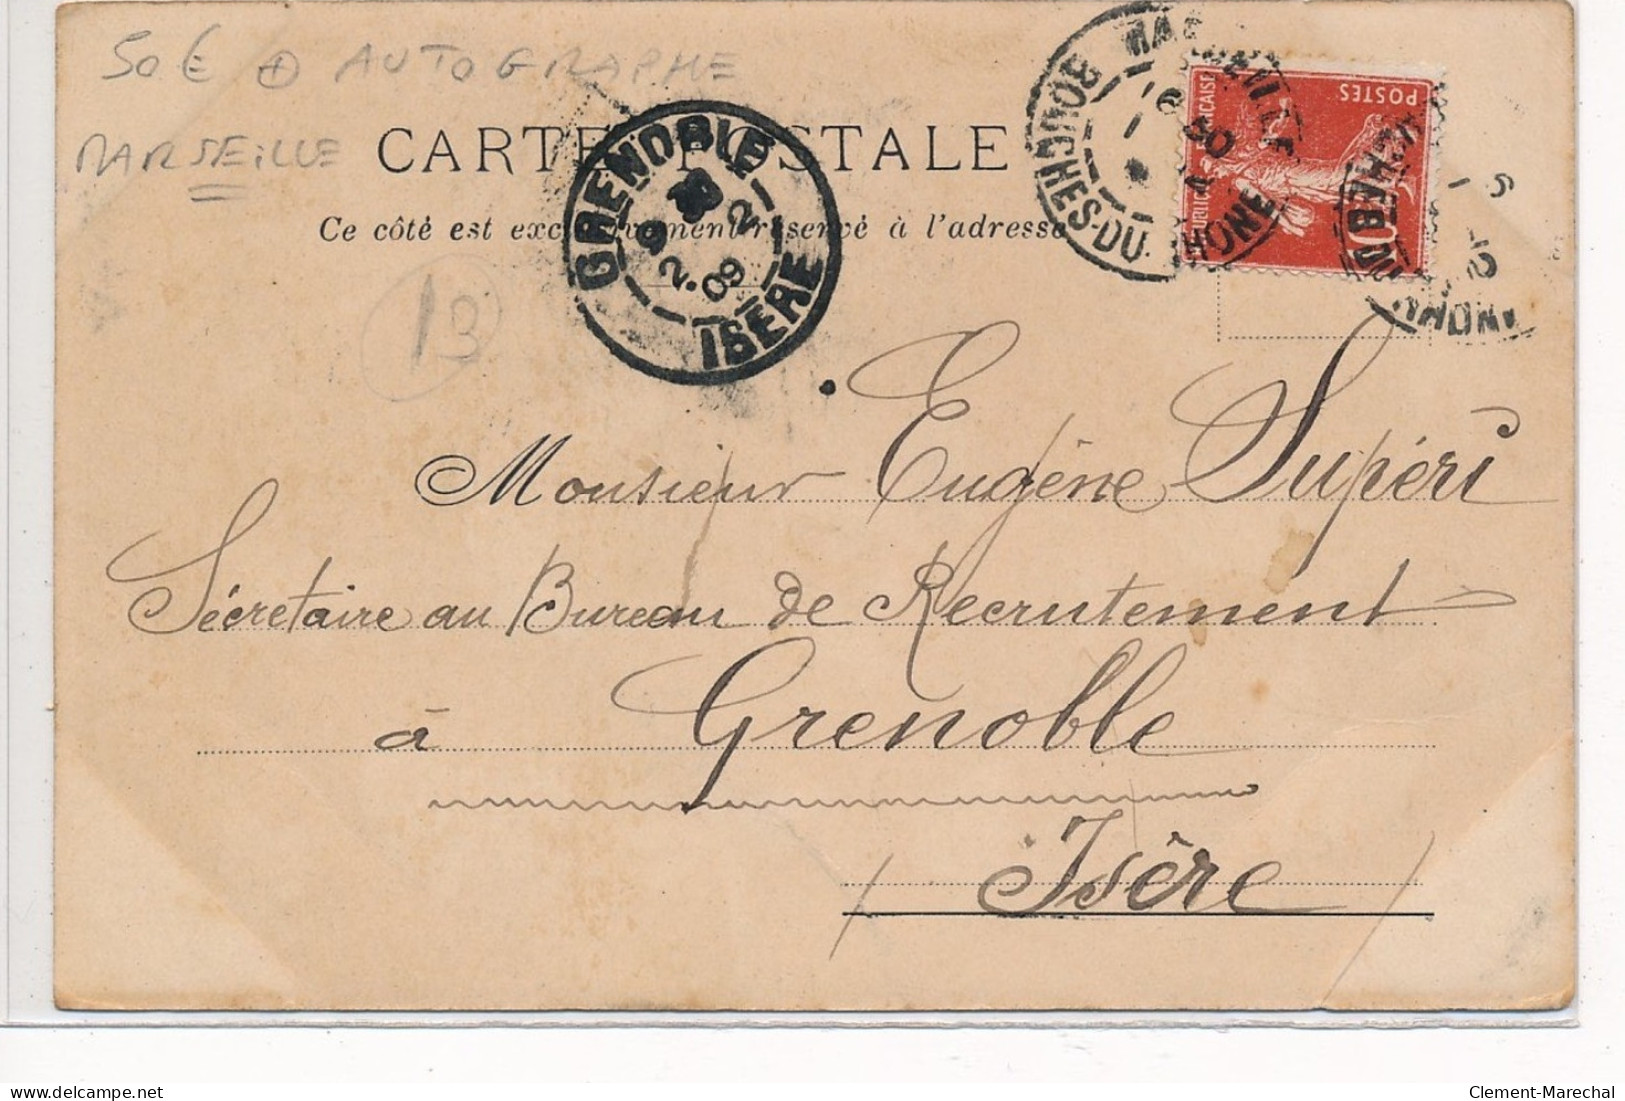 50 € + AUTOGRAPHE
MARSEILLE
CARTE POSTALE
Ce côté est exclusivement réservé à l'adresse
GRENOBLE
9 2
2. 09
ISÈRE
MARSEILLE
BOUCHES-DU-RHONE
POSTES
10
13
Monsieur Eugène Supéri
Sécretaire au Bureau de Recrutement
à Grenoble
Isère
delcampe.net
Clement-Marechal